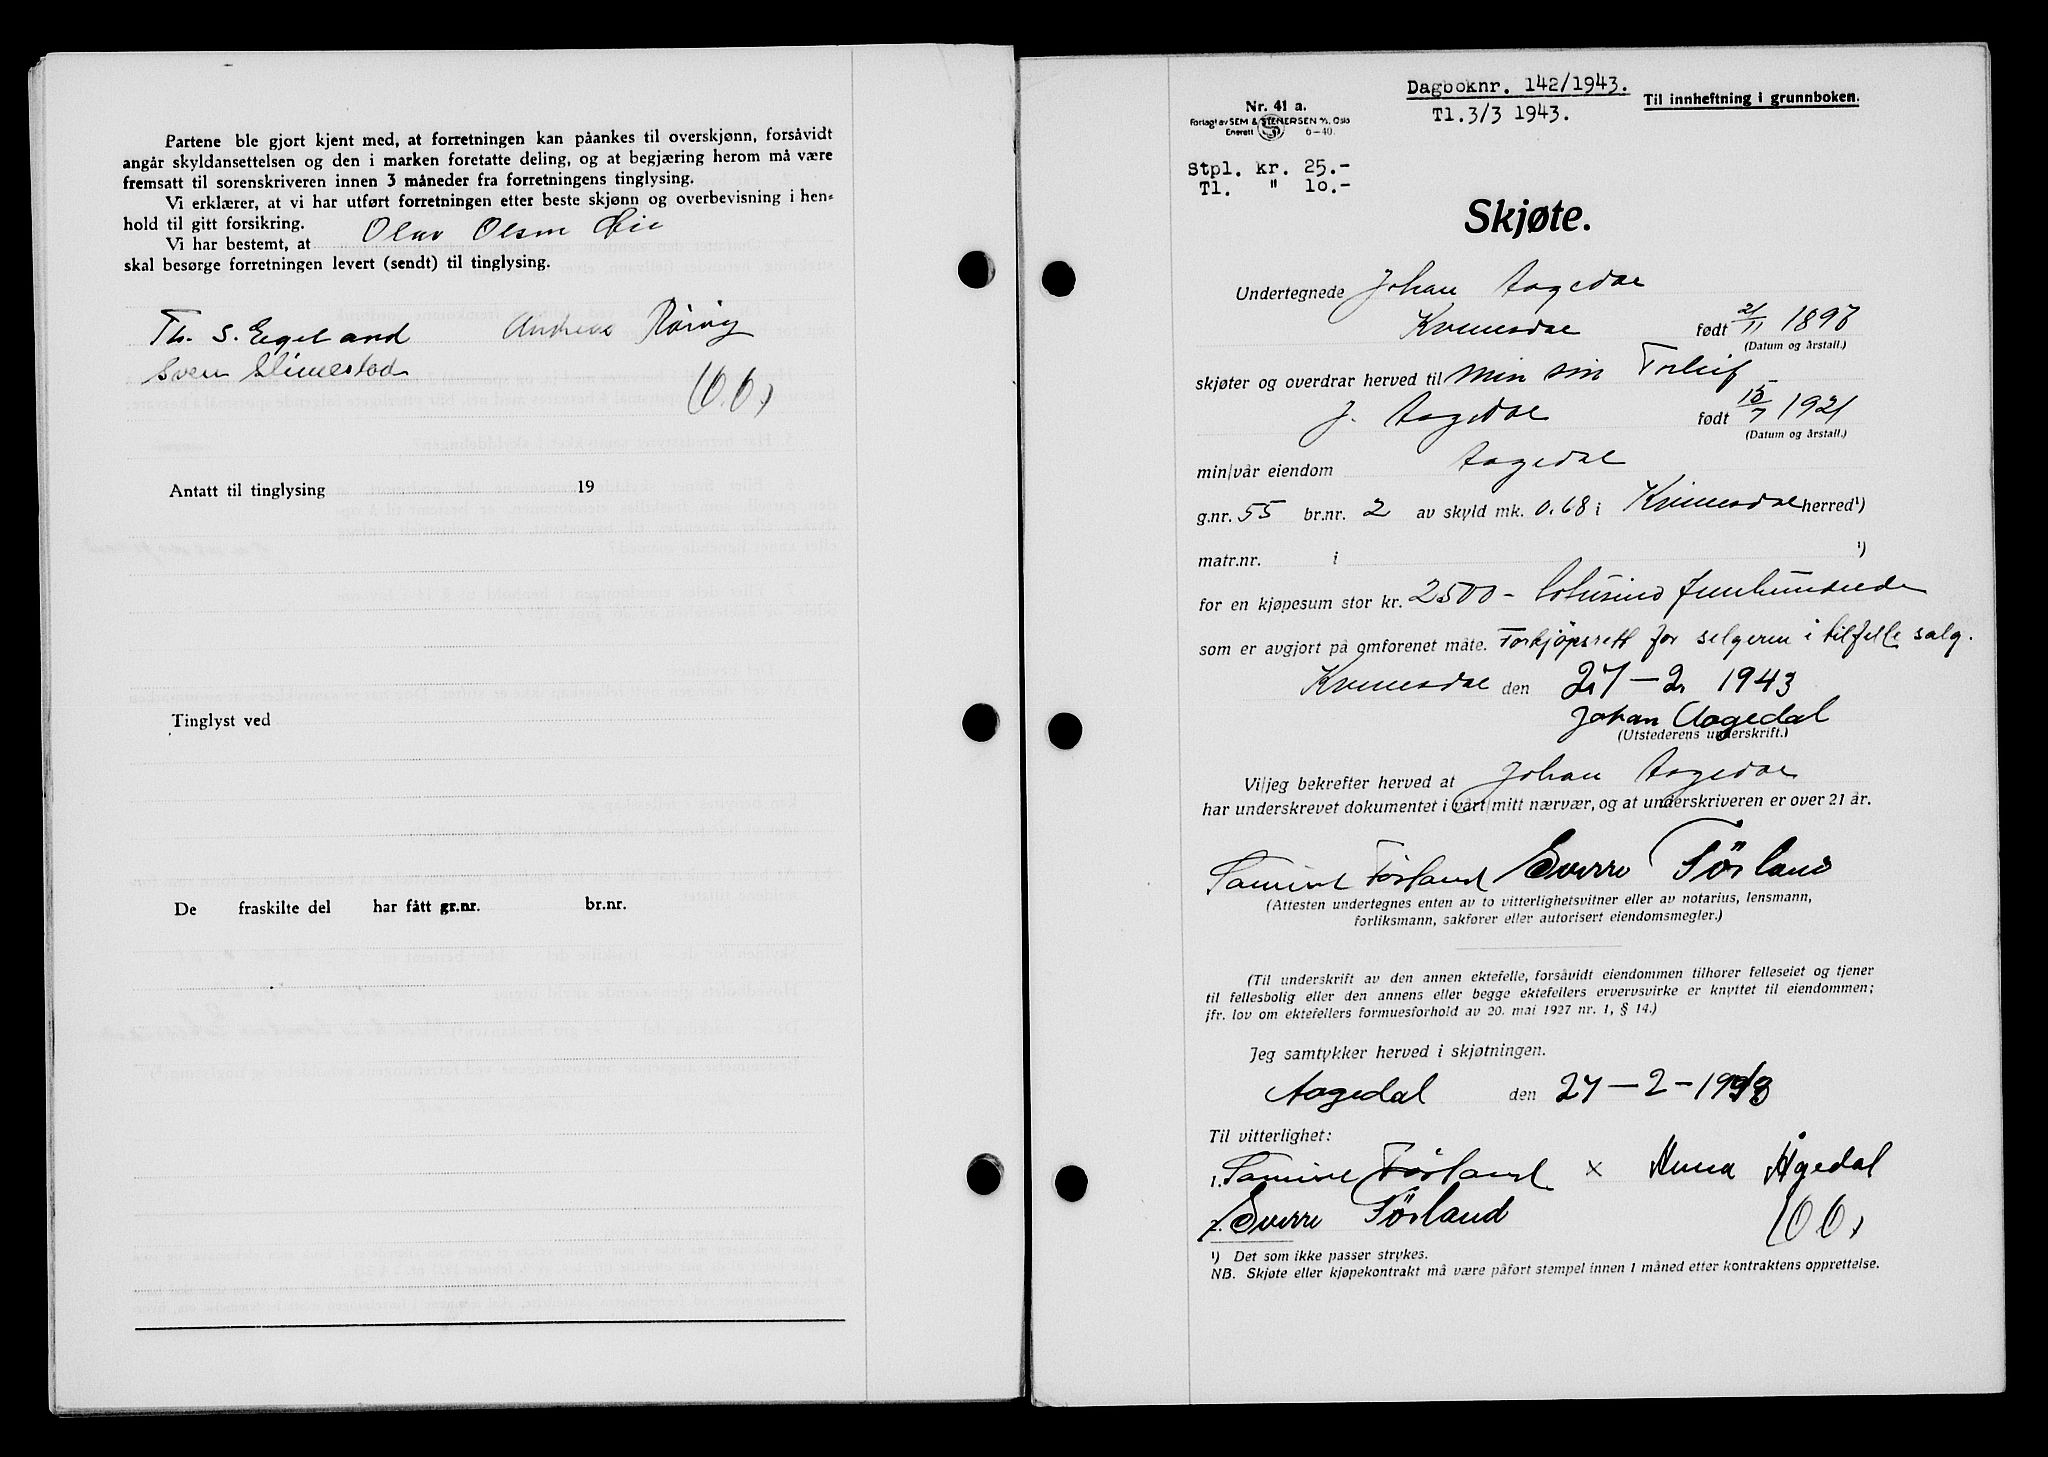 Partene ble gjort kjent med, at forretningen kan påankes til overskjønn, forsåvidt
angår skyldansettelsen og den i marken foretatte deling, og at begjæring herom må være
fremsatt til sorenskriveren innen 3 måneder fra forretningens tinglysing.
Vi erklærer, at vi har utført forretningen etter beste skjønn og overbevisning i hen=
hold til gitt forsikring.
Vi har bestemt, at Olav Olsen
skal besørge forretningen levert (sendt) til tinglysing.
Th. S. Egeland Andreas
Sven Slimestad
(O.b.)
Antatt til tinglysing 19
Tinglyst ved
De fraskilte del har fått gr.nr. br.nr.
Dagboknr. 142/1943.
Tl.3/3 1943.
Til innheftning i grunnboken.
Nr. 41 a.
Forlagt av SEM & STENERSEN A/S, Oslo
Enerett 6-40.
Stpl. kr. 25.-
Tl. " 10.-
Skjøte.
Undertegnede Johan Aagedal
Kvinesdal født 21/11 1898
(Datum og årstall.)
skjøter og overdrar herved til min sønn Torleif
J. Aagedal født 15/7 1921
(Datum og årstall.)
min/vår eiendom Aagedal
g.nr. 55 br.nr. 2 av skyld mk. 0.68 i Kvinesdal herred¹)
matr.nr. i ¹)
for en kjøpesum stor kr. 2500 - totusind femhundrede
som er avgjort på omforenet måte. Forkjøpsrett for selgeren i tilfelle salg.
Kvinesdal den 27-2 1943
Johan Aagedal
(Utstederens underskrift.)
Vi/jeg bekrefter herved at Johan Aagedal
har underskrevet dokumentet i vårt/mitt nærvær, og at underskriveren er over 21 år.
Samine Førland Sverre Førland
(Attesten undertegnes enten av to vitterlighetsvitner eller av notarius, lensmann,
forliksmann, sakfører eller autorisert eiendomsmegler.)
(Til underskrift av den annen ektefelle, forsåvidt eiendommen tilhører felleseiet og tjener
til fellesbolig eller den annens eller begge ektefellers ervervsvirke er knyttet til eiendommen;
jfr. lov om ektefellers formuesforhold av 20. mai 1927 nr. 1, § 14.)
Jeg samtykker herved i skjøtningen.
Aagedal den 27-2-1943
Til vitterlighet:
1. Samine Førland x Anna Ågedal
2. Sverre Førland (O.b.)
¹) Det som ikke passer strykes.
NB. Skjøte eller kjøpekontrakt må være påført stempel innen 1 måned etter kontraktens opprettelse.